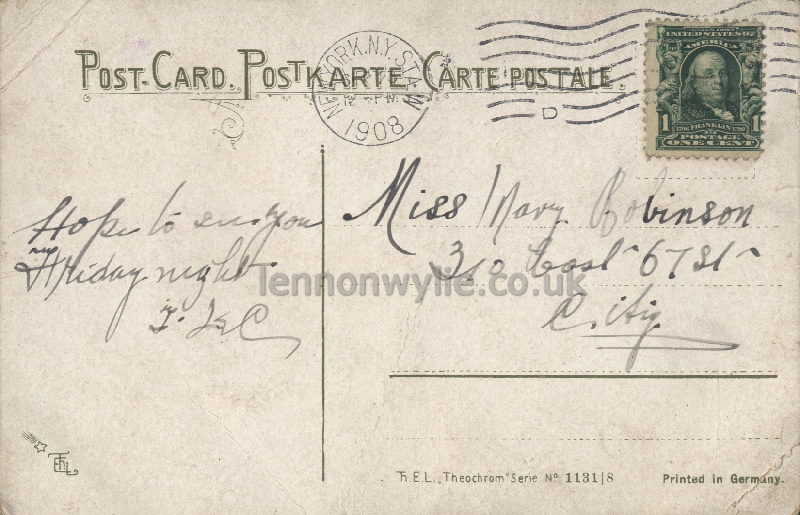 POST-CARD. POSTKARTE. CARTE POSTALE.
NEW YORK, N.Y. STA. W
PM
1908
D
UNITED STATES OF
AMERICA
1 1706 FRANKLIN 1790 1
POSTAGE
ONE CENT
Hope to see you
Friday night
Miss Mary Robinson
310 East 67 St
City
lennonwylie.co.uk
Th.E.L. „Theochrom" Serie No 1131/8
Printed in Germany.